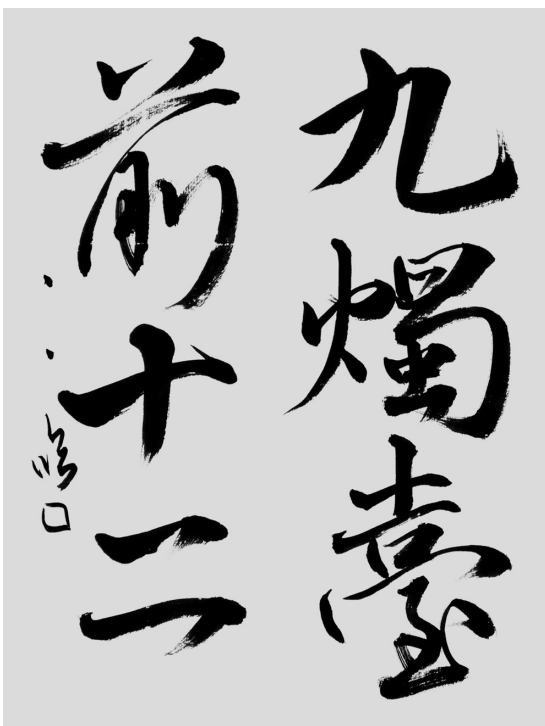 九燭臺
前十二